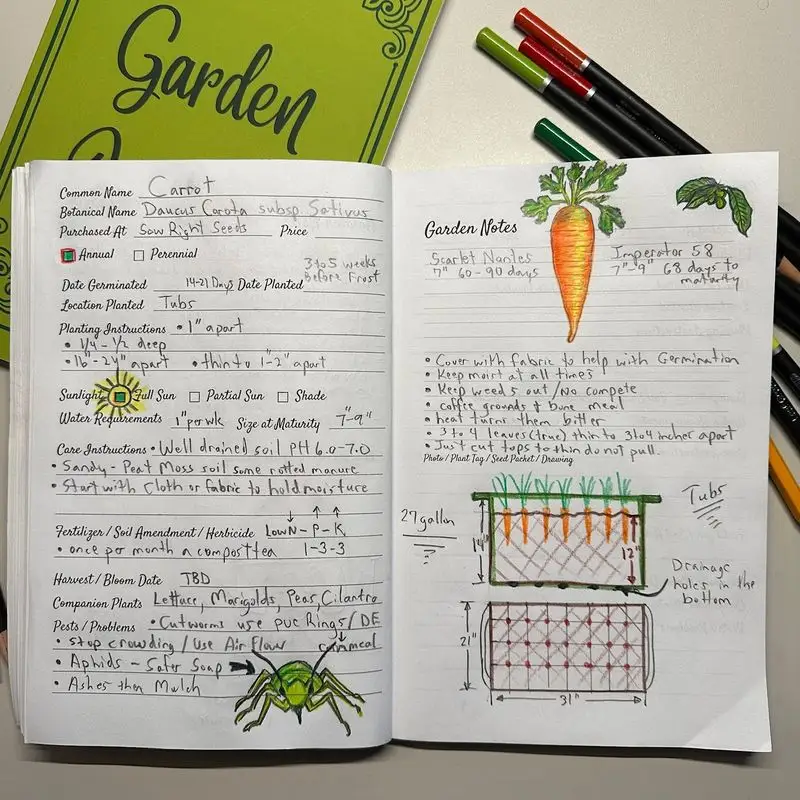 Garden
Common Name Carrot
Botanical Name Daucus Carota subsp Sativus
Purchased At Sow Right Seeds Price
Annual Perennial
3 to 5 weeks
Before Frost
Date Germinated 14-21 Days Date Planted
Location Planted Tubs
Planting Instructions • 1" apart
• 1/4 - 1/2 deep
• 16" - 24" apart • thin to 1-2" apart
Sunlight Full Sun Partial Sun Shade
Water Requirements 1" per wk Size at Maturity 7"-9"
Care Instructions • Well drained soil PH 6.0-7.0
• Sandy - Peat Moss soil some rotted manure
• Start with Cloth or fabric to hold moisture
↓ ↑ ↑
Fertilizer / Soil Amendment / Herbicide Low N - P - K
• once per month a compost tea 1-3-3
Harvest / Bloom Date TBD
Companion Plants Lettuce, Marigolds, Peas, Cilantro
Pests / Problems • Cutworms use pvc Rings / DE
• stop crowding / Use Air Flow cornmeal
• Aphids - Safer Soap
• Ashes then Mulch
Garden Notes
Scarlet Nantes
7" 60-90 days
Imperator 58
7"-9" 68 days to
maturity
• Cover with fabric to help with Germination
• Keep moist at all times
• Keep weeds out / No compete
• coffee grounds & bone meal
• heat turns them bitter
• 3 to 4 leaves (true) thin to 3 to 4 inches apart
• Just cut tops to thin do not pull.
Photo / Plant Tag / Seed Packet / Drawing
27 gallon
Tubs
14"
12"
Drainage
holes in the
bottom
21"
31"